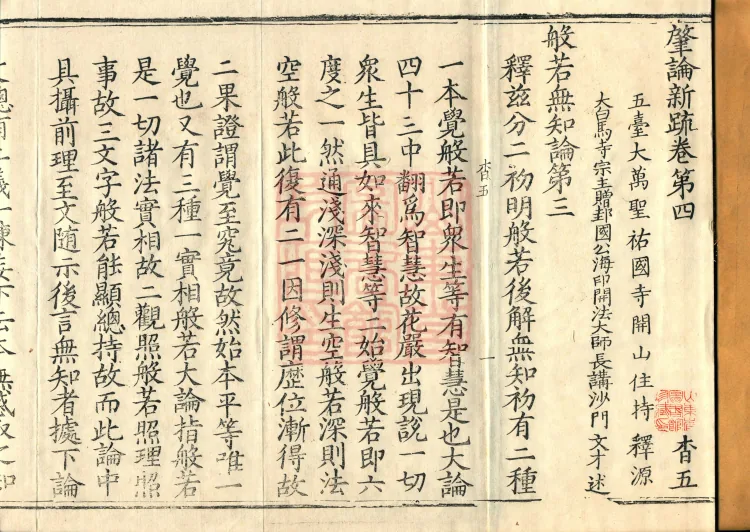 肇論新䟽卷第四 杳五
五臺大萬聖祐國寺開山住持 釋源
大白馬寺宗主贈封國公海印開法大師長講沙門 文才 述
般若無知論第三
釋兹分二初明般若後解無知初有二種
杳五 一
一本覺般若即衆生等有智慧是也大論
四十三中翻爲智慧故花嚴出現説一切
衆生皆具如來智慧等二始覺般若即六
度之一然通淺深淺則生空般若深則法
空般若此復有二一因修謂歷位漸得故
二果證謂覺至究竟故然始本平等唯一
覺也又有三種一實相般若大論指般若
是一切諸法實相故二觀照般若照理照
事故三文字般若能顯總持故而此論中
具攝前理至文随示後言無知者據下論